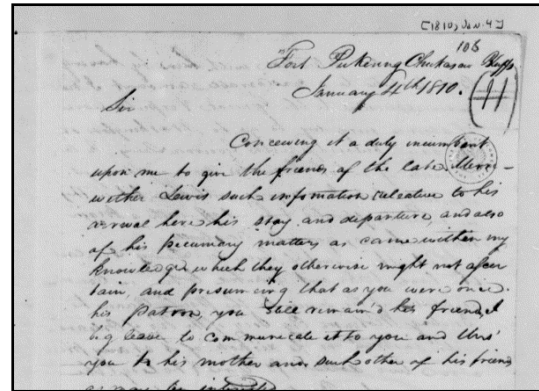 [1810, Jan. 4]
Fort Pickering Chickasaw Bluffs
January 4th 1810.
Sir
Conceiving it a duty incumbent
upon me to give the friends of the late Merri-
wether Lewis such information relative to his
arrival here his stay and departure, and also
of his pecuniary matters as came within my
knowledge which they otherwise might not ascer
tain, and presuming that as you were once
his patron, you still remain'd his friend, I
beg leave to communicate it to you and thro'
you to his mother and such other of his friends
as may be interested